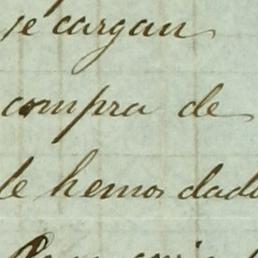 se cargan
compra de
le hemos dado